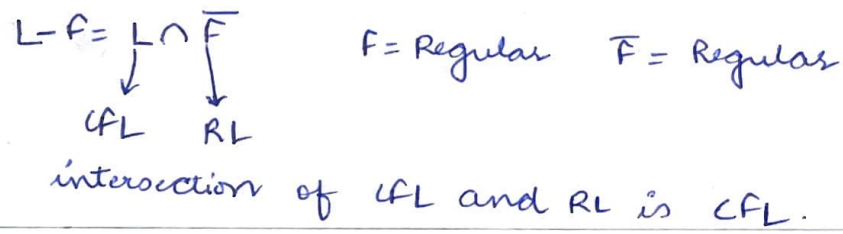 L-F = L ∩ F̅ F = Regular F̅ = Regular
CFL RL
intersection of CFL and RL is CFL.